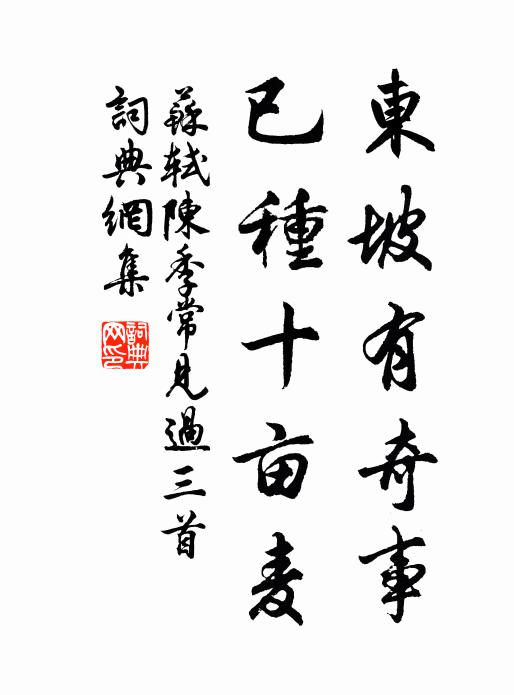 東坡有奇事
已種十亩麦
蘇軾陳季常見過三首
詞典網集
詞典网印